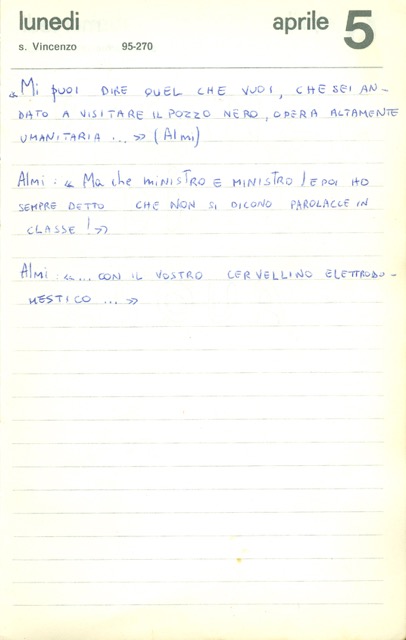 lunedì aprile 5
s. Vincenzo 95-270
«Mi puoi DIRE QUEL CHE VUOI, CHE SEI AN-
DATO A VISITARE IL POZZO NERO, OPERA ALTAMENTE
UMANITARIA ...» (Almi)
Almi: « Ma che MINISTRO E MINISTRO! E POI HO
SEMPRE DETTO CHE NON SI DICONO PAROLACCE IN
CLASSE!»
Almi: «... CON IL VOSTRO CERVELLINO ELETTRODO-
MESTICO ...»